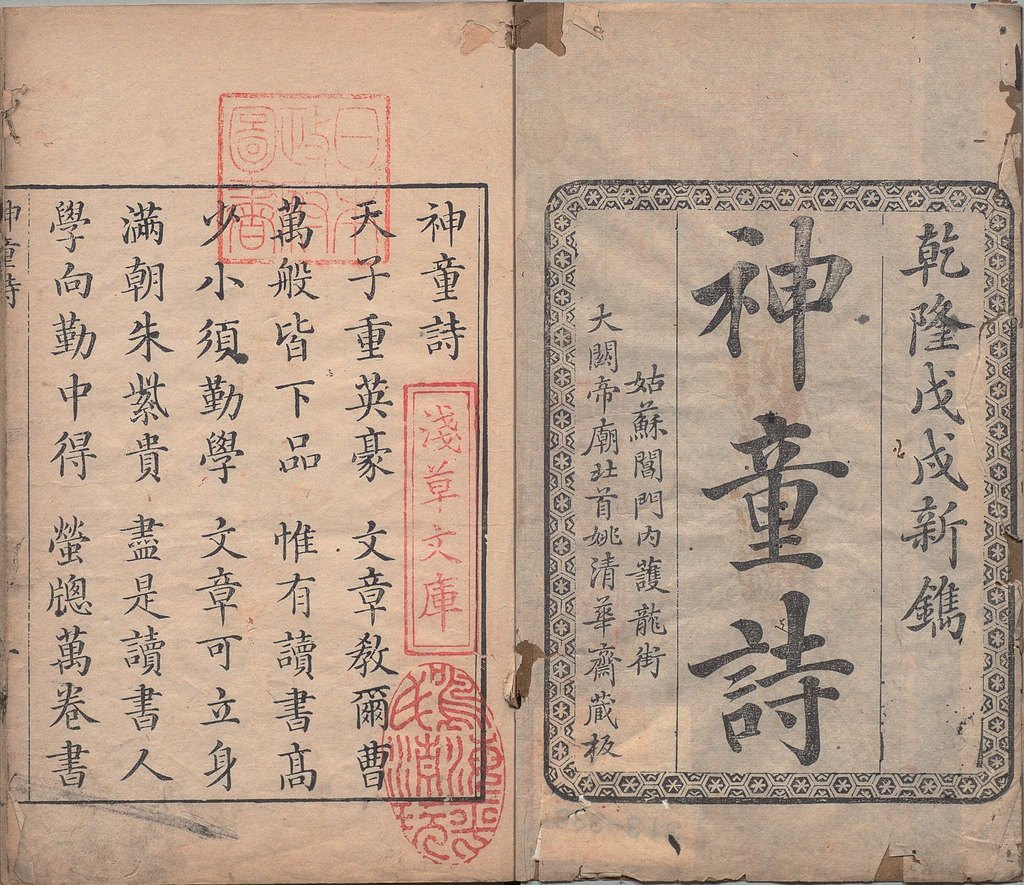 乾隆戊戌新鐫
神童詩
姑蘇閶門内護龍街
大關帝廟北首姚清華齋藏板
神童詩
天子重英豪 文章教爾曹
萬般皆下品 惟有讀書高
少小須勤學 文章可立身
滿朝朱紫貴 盡是讀書人
學向勤中得 螢牎萬卷書
神童詩
日本政府圖書
淺草文庫